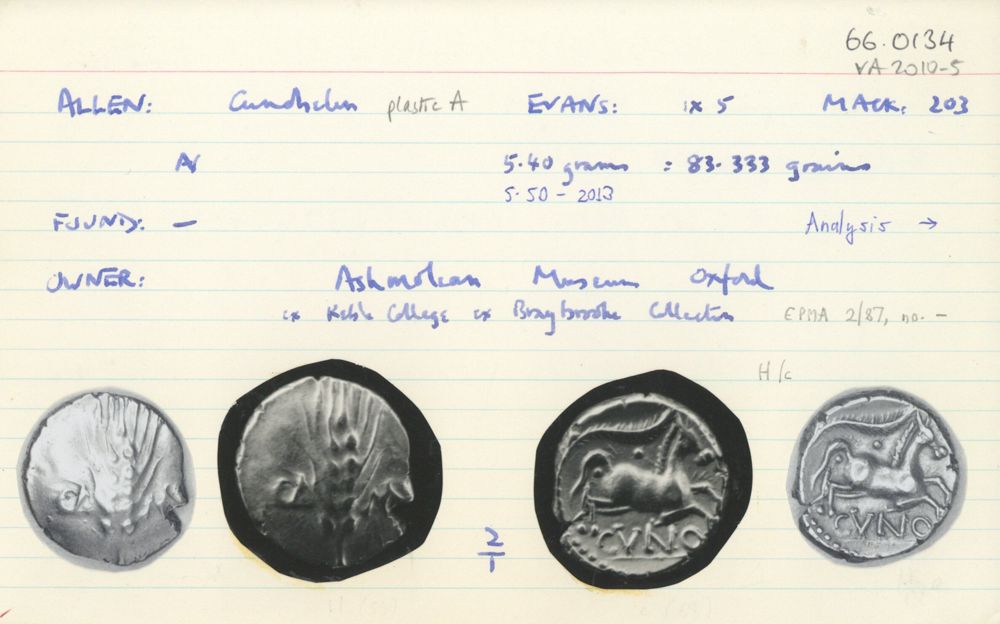 66.0134
VA 2010-5
ALLEN: Cunobelin plastic A EVANS: ix 5 MACK: 203
AV 5.40 grams = 83.333 grains
5.50 - 2013
FOUND: — Analysis →
OWNER: Ashmolean Museum Oxford
ex Keble College ex Braybrooke Collection EPMA 2/87, no. -
H/c
2/1
CVNO
CVNO